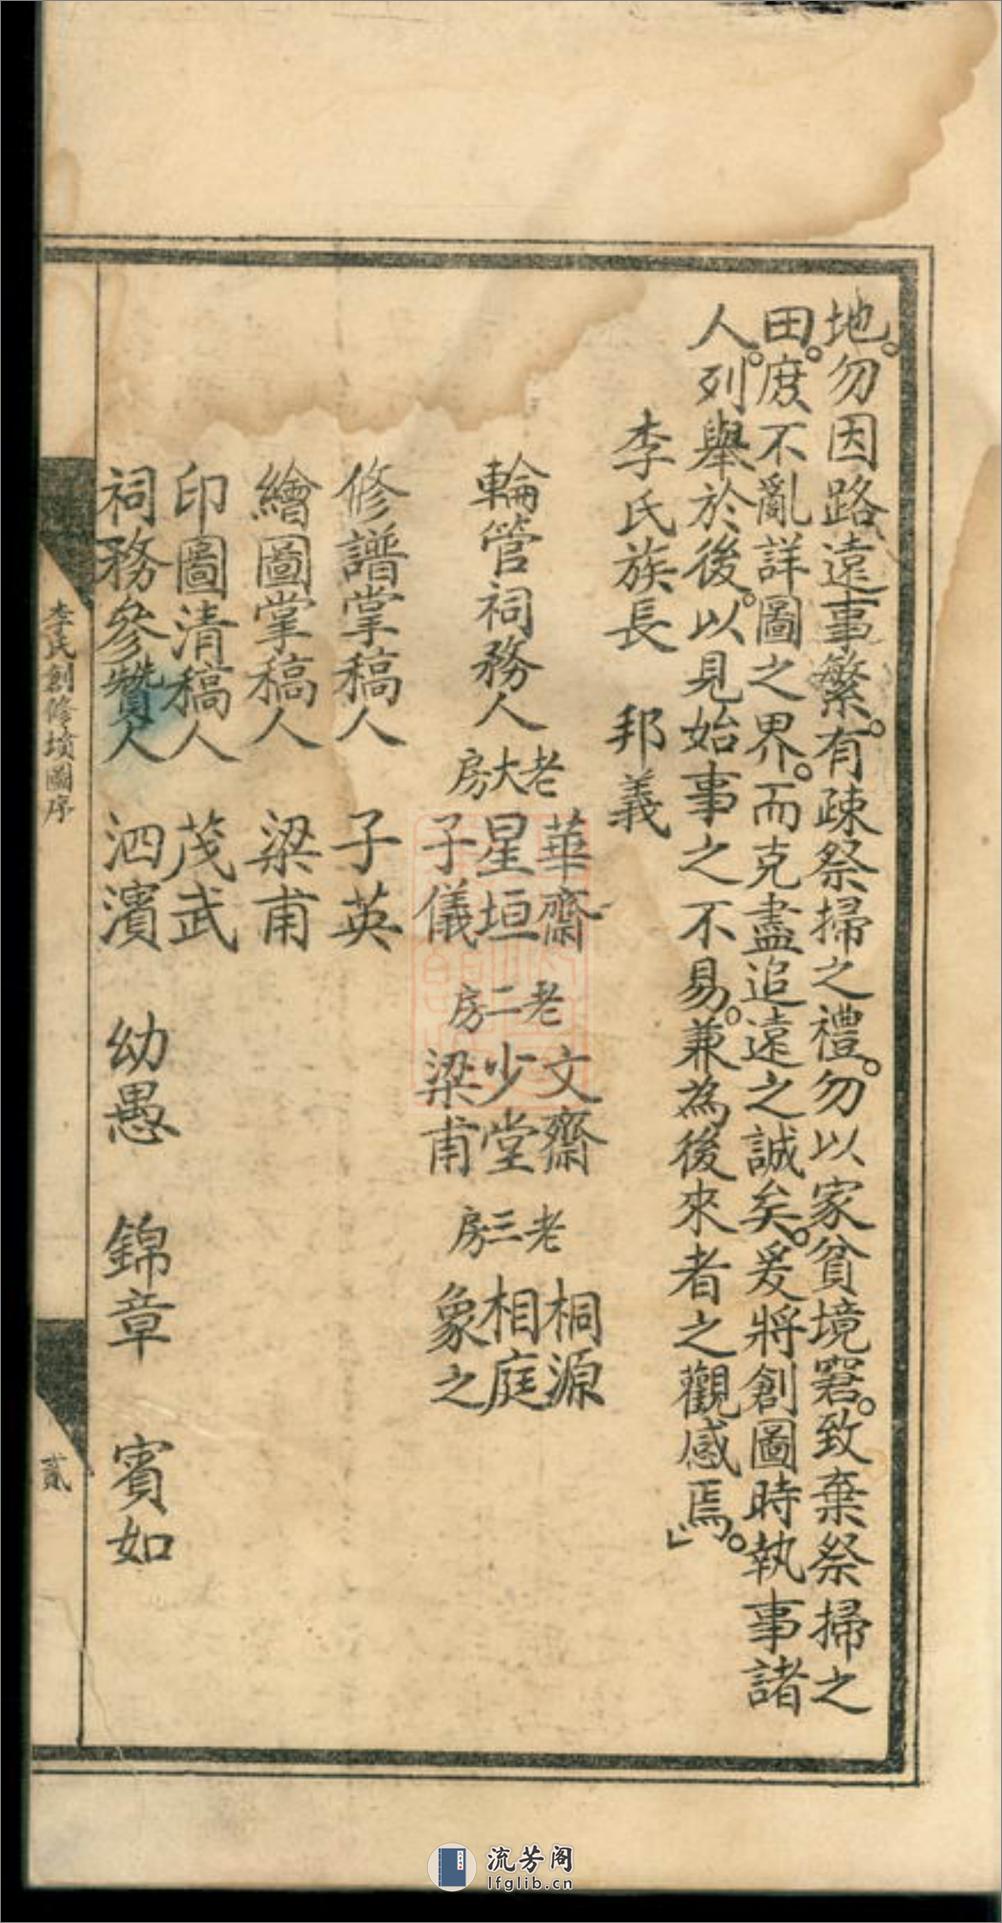 地。勿因路遠事繁。有疎祭掃之禮。勿以家貧境窘。致棄祭掃之
田。庶不亂詳圖之界。而克盡追遠之誠矣。爰將創圖時執事諸
人。列舉於後。以見始事之不易。兼為後來者之觀感焉。」
李氏族長 邦義
輪管祠務人
老大房 華齋 星垣 子儀
老二房 文齋 少堂 梁甫
老三房 桐源 相庭 象之
修譜掌稿人 子英
繪圖掌稿人 梁甫
印圖清稿人 茂武
祠務參贊人 泗濱 幼愚 錦章 賓如
李氏創修墳圖序
貳
流芳阁
lfglib.cn